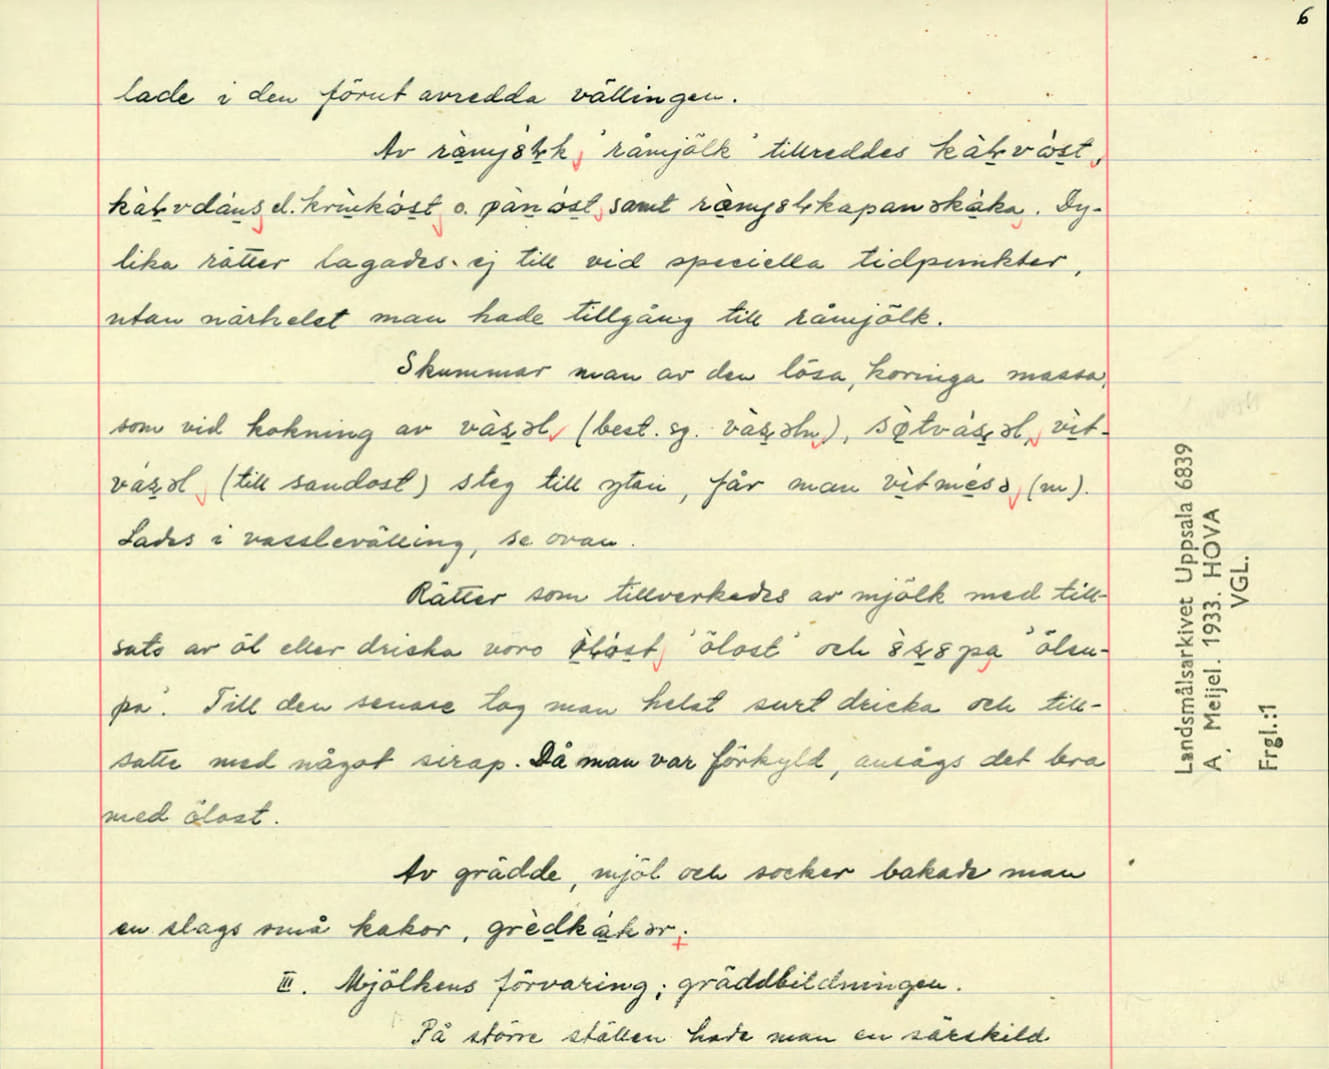 6
lade i den förut avredda vällingen.
Av ràmjölk 'råmjölk' tillreddes kàlvóst,
kàlvdáns el. krìnkóst o. pànóst, samt ràmjölkapanəkáka. Dy-
lika rätter lagades ej till vid speciella tidpunkter,
utan närhelst man hade tillgång till råmjölk.
Skummar man av den lösa, korniga massa,
som vid kokning av vàsəl (best. sg. vàsəln), sø̀tvásəl, vìt-
vásəl (till sandost) steg till ytan, får man vìtmésə (m).
Lades i vasslevälling, se ovan.
Rätter som tillverkades av mjölk med till-
sats av öl eller dricka voro ø̀lóst 'ölost' och 'ölsu-
pa'. Till den senare tog man helst surt dricka och till-
satte med något sirap. Då man var förkyld, ansågs det bra
med ölost.
Av grädde, mjöl och socker bakade man
en slags små kakor, grèdkákər.
III. Mjölkens förvaring; gräddbildningen.
På större ställen hade man en särskild
Landsmålsarkivet Uppsala 6839
A. Meijel. 1933. HOVA
VGL.
Frgl.:1